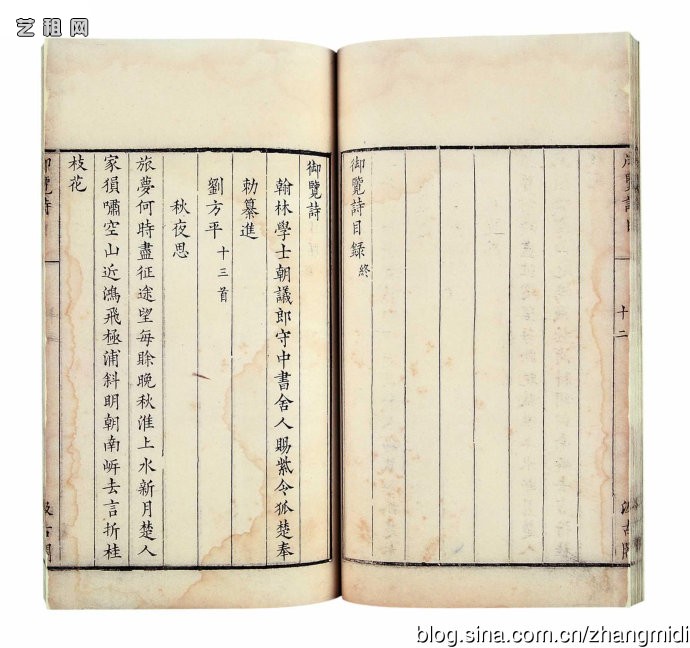 艺租网
御覽詩目
十二
汲古閣
御覽詩目録終
御覽詩
翰林學士朝議郎守中書舍人賜紫令狐楚奉
勅纂進
劉方平 十三首
秋夜思
旅夢何時盡征途望每賒晚秋淮上水新月楚人
家猿嘯空山近鴻飛極浦斜明朝南岍去言折桂
枝花
御覽詩
汲古閣
blog.sina.com.cn/zhangmidi